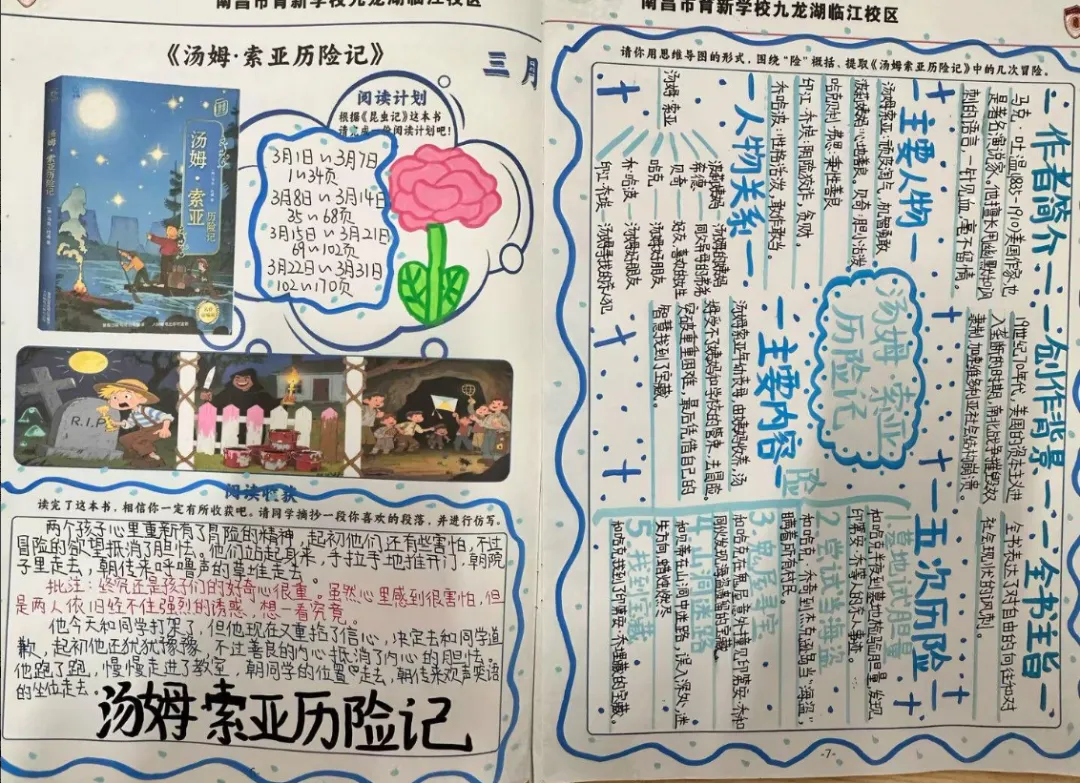 南昌市育新学校九龙湖临江校区
《汤姆·索亚历险记》
三月
阅读计划
根据《昆虫记》这本书
请完成一份阅读计划吧!
3月1日~3月7日
1~34页
3月8日~3月14日
35~68页
3月15日~3月21日
69~102页
3月22日~3月31日
102~170页
汤姆·索亚
历险记
汤姆·索亚历险记
R.I.P
阅读收获
读完了这本书,相信你一定有所收获吧。请同学摘抄一段你喜欢的段落,并进行仿写。
两个孩子心里重新有了冒险的精神,起初他们还有些害怕,不过
冒险的欲望抵消了胆怯。他们站起身来,手拉手地推开门,朝院
子里走去,朝传来呼噜声的草堆走去。
批注:终究还是孩子们的好奇心很重。虽然心里感到很害怕,但
是两人依旧经不住强烈的诱惑,想一看究竟。
他今天和同学打架了,但他现在又重拾了信心,决定去和同学道
歉,起初他还犹犹豫豫,不过善良的内心抵消了内心的胆怯。
他跑了跑,慢慢走进了教室,朝同学的位置走去,朝传来欢声笑语
的坐位走去。
汤姆索亚历险记
南昌市育新学校九龙湖临江校区
请你用思维导图的形式,围绕“险”概括、提取《汤姆索亚历险记》中的几次冒险。
作者简介
马克·吐温1835-1910美国作家,也
是著名演说家。他擅长用幽默和讽
刺的语言,一针见血,毫不留情。
创作背景
19世纪70年代,美国的资本主义进
入垄断的时期,南北战争摧毁奴
隶制,加速维多利亚社会结构崩溃。
全书主旨
全书表达了对自由的向往和对
社会现状的讽刺。
主要人物
汤姆索亚:顽皮淘气,机智勇敢
波莉姨妈:心地善良。贝奇:胆小活泼
哈克贝利·费恩:秉性善良
印江·乔埃:阴险狡诈,贪财。
乔哈波:性格活泼,敢做敢当。
汤姆 索亚
历险记
五次历险
险
1 墓地试胆量
和哈克半夜到墓地旁试胆量,发现
印第安·乔杀人的杀人事迹。
2 尝试当海盗
和哈克、乔奇到杰克逊岛当“海盗”
瞒着所有村民。
3 鬼屋寻宝
和哈克在鬼屋意外撞见印第安·乔和
同伙发现海盗藏匿的宝藏。
4 山洞迷路
和贝蒂在山洞中迷路,误入深处,迷
失方向,蜡烛燃尽
5 找到宝藏
和哈克找到了印第安·乔埋藏的宝藏。
人物关系
汤姆·索亚
波莉姨妈——汤姆的姨妈
希德——同父异母的弟弟
贝奇——好友,喜欢的女生
哈克——汤姆好朋友
乔·哈波——汤姆好朋友
印江·乔埃——汤姆寻找的杀人犯
主要内容
汤姆索亚年幼丧母,由姨妈收养,汤
姆受不了姨妈和学校的管束,去冒险,
突破重重困难,最后凭借自己的
智慧找到了宝藏。
-7-